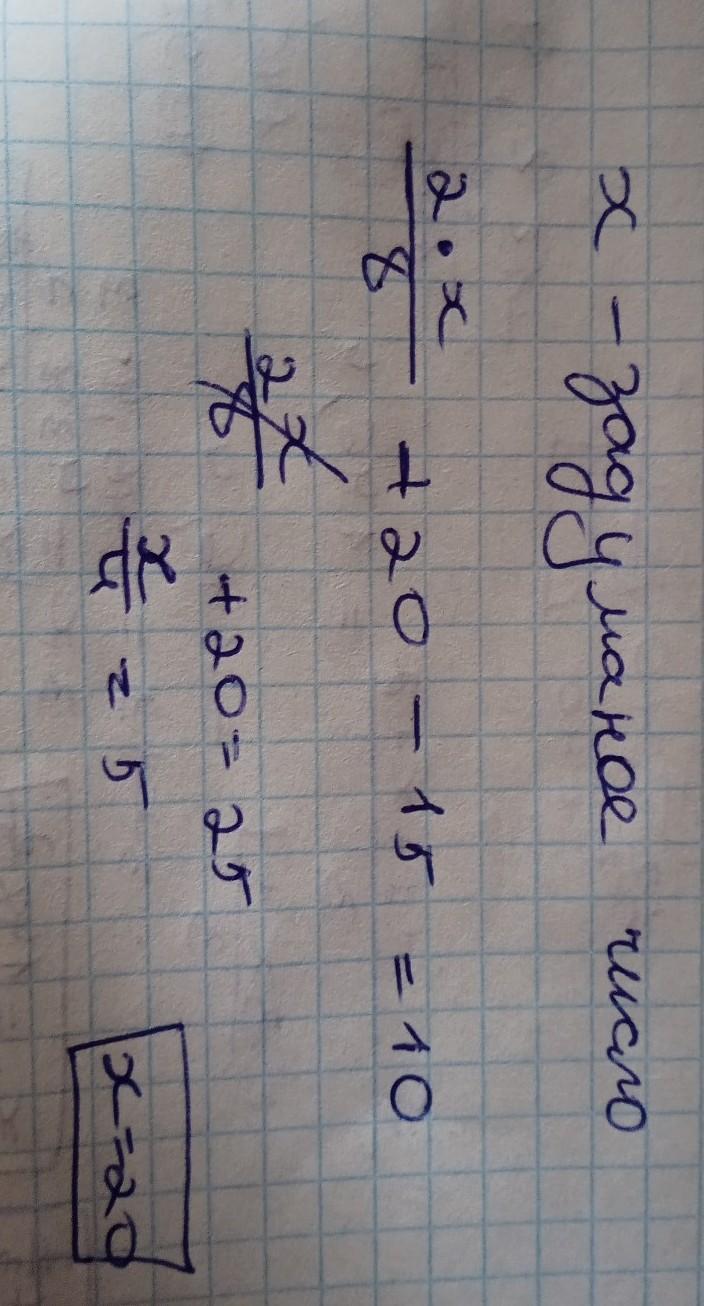 x - задуманое число
2·x/8 + 20 - 15 = 10
2x/8 + 20 = 25
x/4 = 5
x = 20